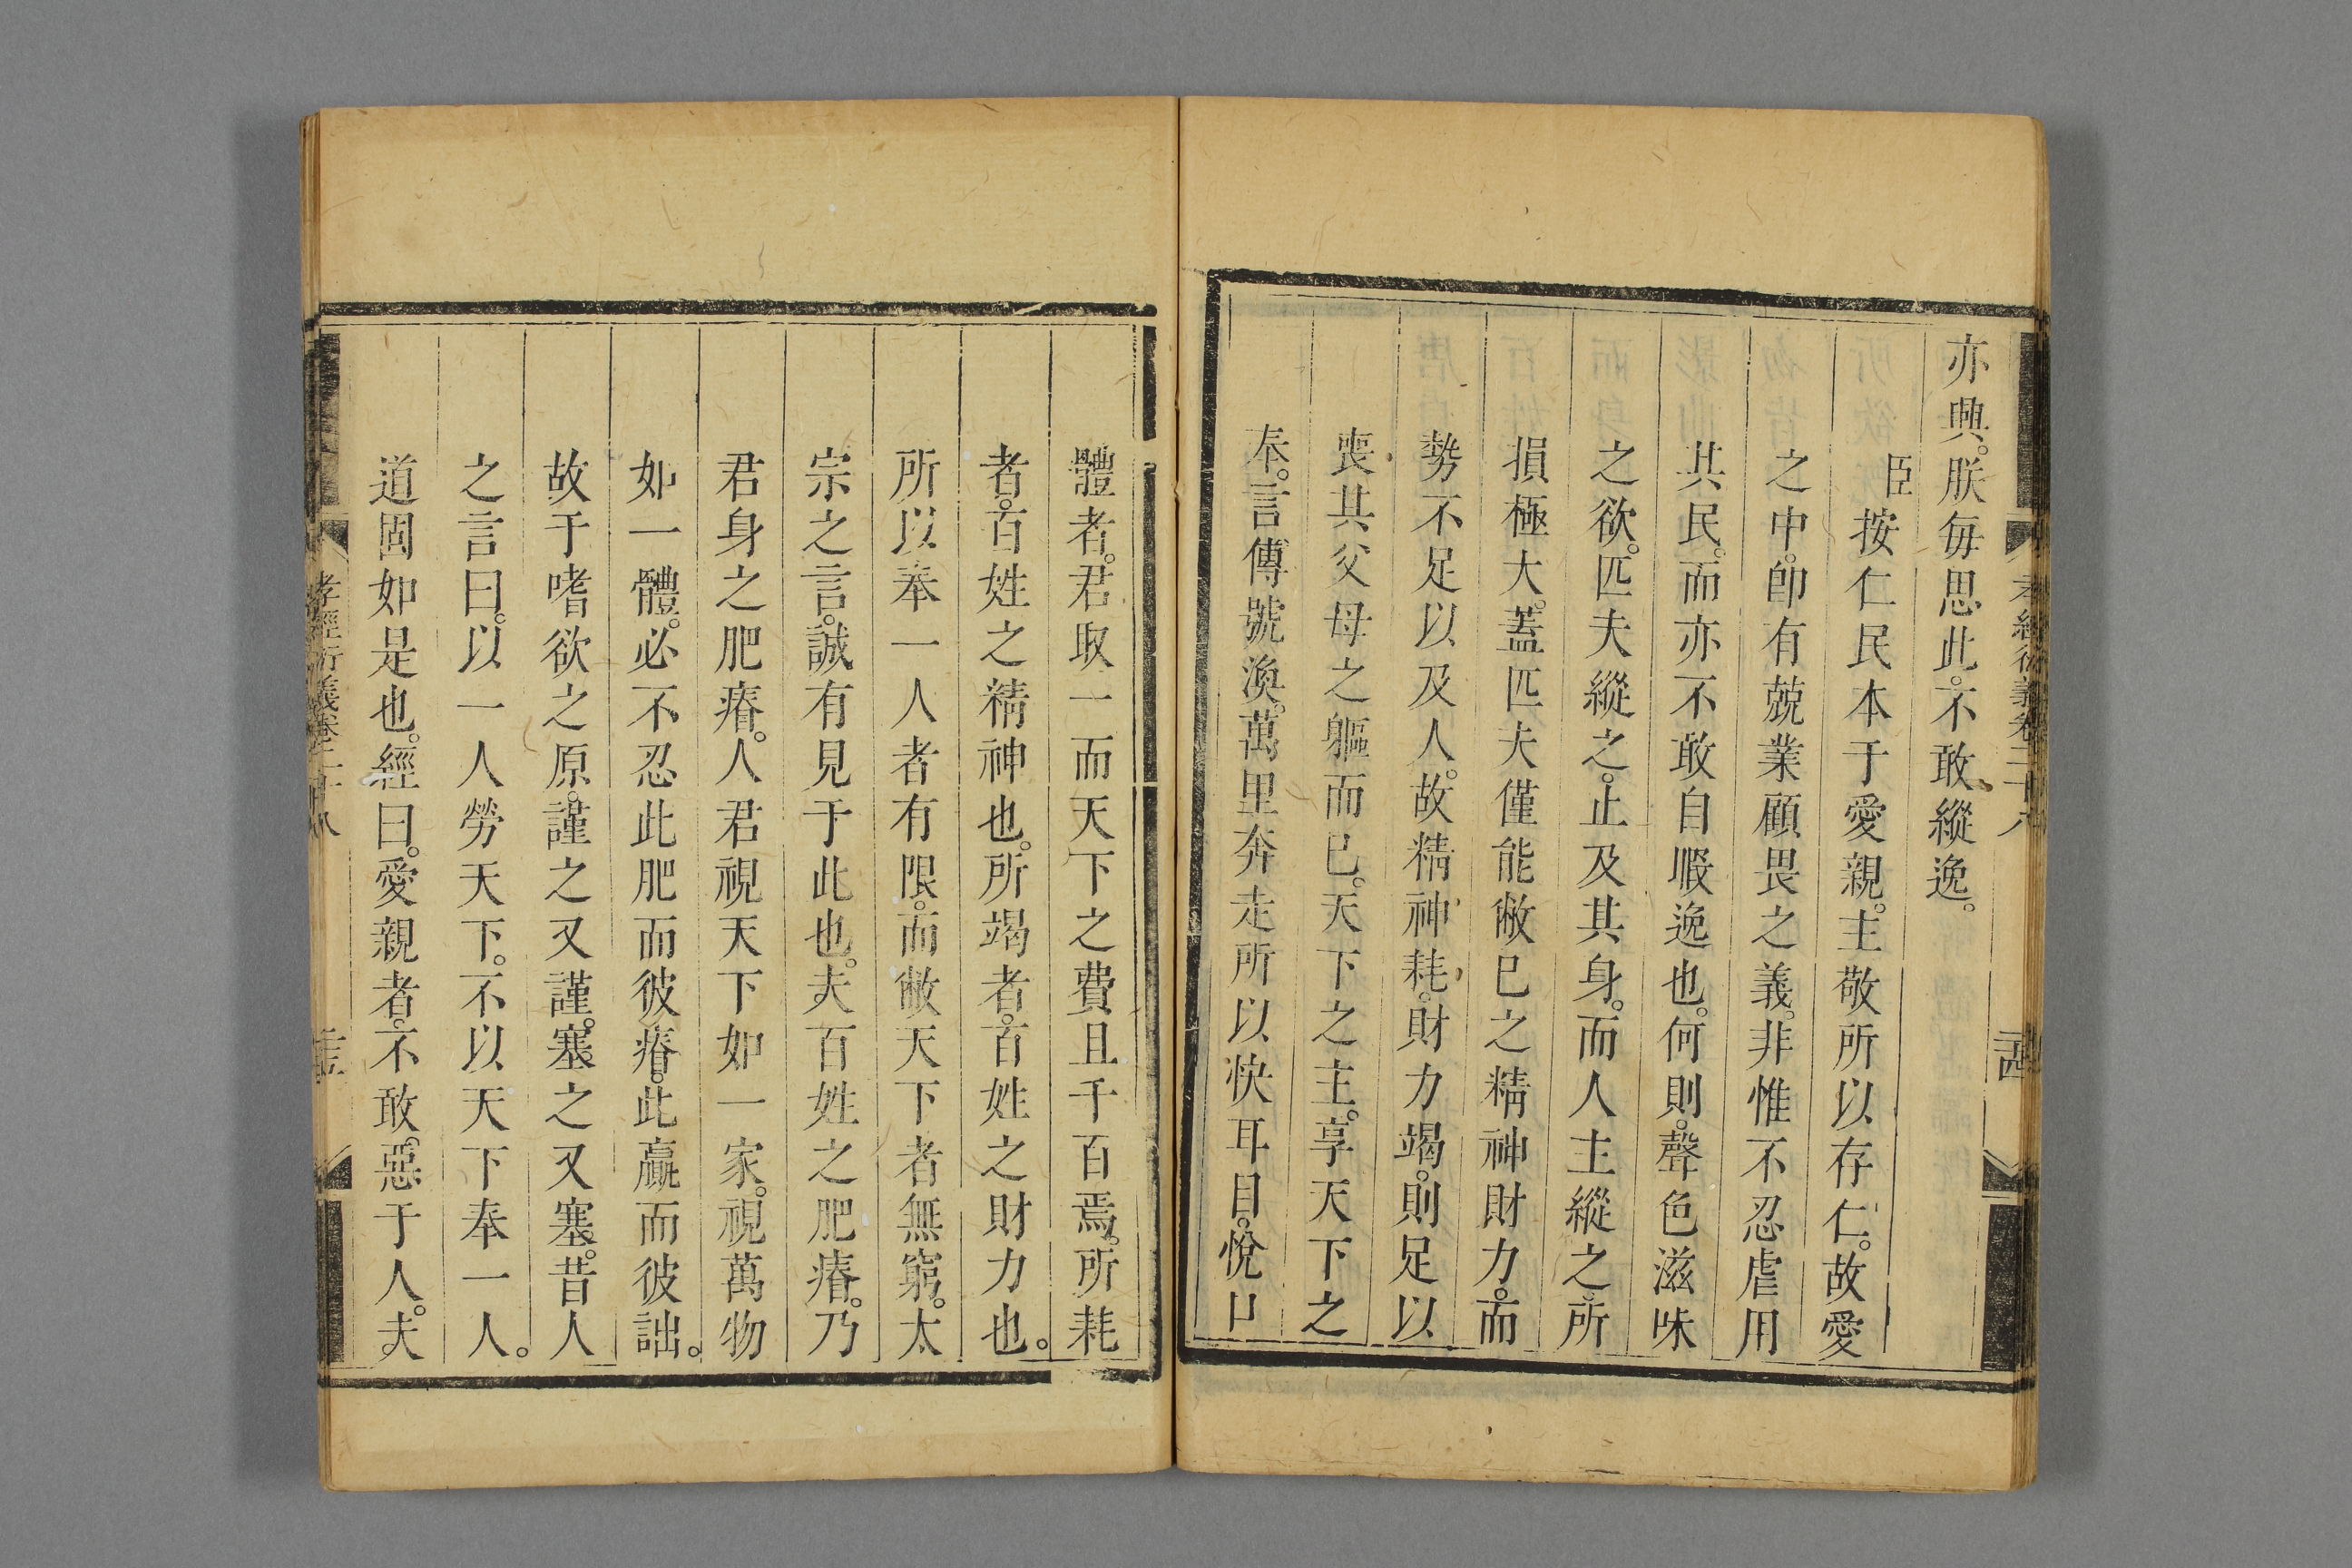 亦興。朕每思此。不敢縱逸。
臣按仁民本于愛親。主敬所以存仁。故愛
之中。卽有兢業顧畏之義。非惟不忍虐用
其民。而亦不敢自暇逸也。何則。聲色滋味
之欲。匹夫縱之。止及其身。而人主縱之。所
損極大。蓋匹夫僅能敝已之精神財力。而
勢不足以及人。故精神耗。財力竭。則足以
喪其父母之軀而已。天下之主。享天下之
奉。言傳號渙。萬里奔走所以快耳目。悅口
體者。君取一而天下之費且千百焉。所耗
者。百姓之精神也。所竭者。百姓之財力也。
所以奉一人者有限。而敝天下者無窮。太
宗之言。誠有見于此也。夫百姓之肥瘠。乃
君身之肥瘠。人君視天下如一家。視萬物
如一體。必不忍此肥而彼瘠。此贏而彼詘。
故于嗜欲之原。謹之又謹。塞之又塞。昔人
之言曰。以一人勞天下。不以天下奉一人。
道固如是也。經曰。愛親者。不敢惡于人。夫
孝經衍義卷二十八